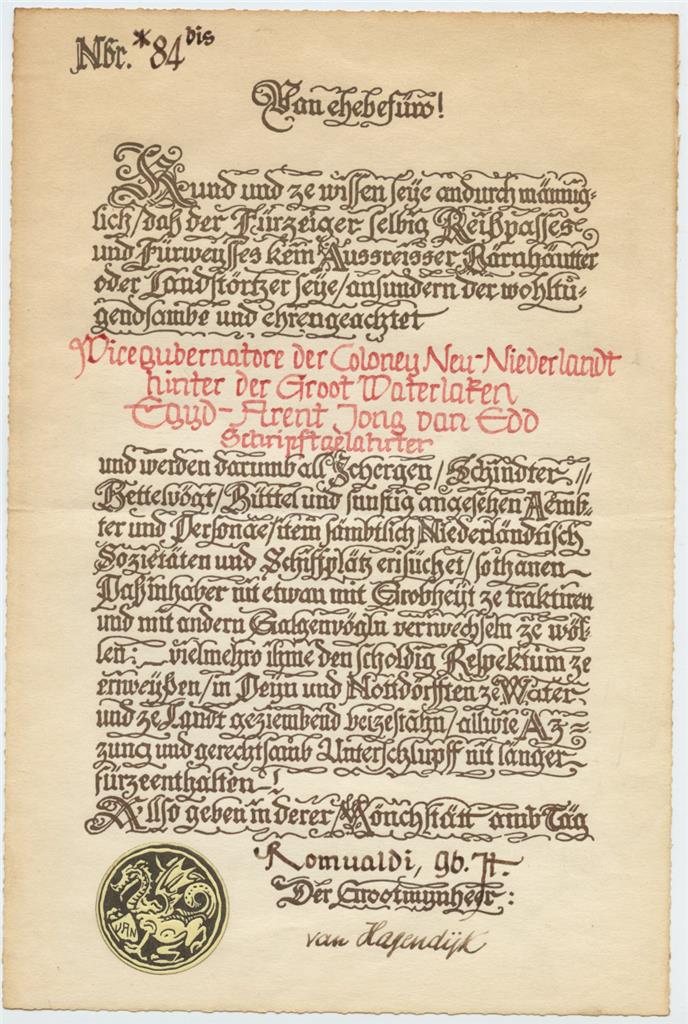 Nbr. *84 bis
Van ehebefüro!
Kund und ze wissen seÿe andurch männig-
lich/daß der Fürzeiger selbig Reißpasses
und Fürweysses kein Aussreisser Bärnhäutter
oder Landstörtzer seÿe/ansundern der wohltu-
gendsambe und ehrengeachtet
Vicegubernatore der Coloney Neu-Niederlandt
hinter der Groot Waterlaken
Egyd-Arent Jong van Edd
Schripftgelahrter
und werden darumb all Schergen/Schindter//
Bettelvögt/Büttel und sunstig angesehen Aemb-
ter und Personae/item sämbtlich Niederländtisch
Sozietäten und Schiffplätz ersuchet/sothanen
Paßinhaber nit etwan mit Grobheÿt ze traktiren
und mit andern Galgenvögln verrwechseln ze wöl-
len: vielmehro ihme den scholdig Respektum ze
erweÿßen/in Peÿn und Nottdörfften ze Water
und ze Landt geziembend beizestahn/allwie Az=
zung und gerechtsamb Unterschlupff nit länger
fürzeenthalten!
Also geben in derer Mönchstatt amb Tag
Romualdi, gb. H.
Der Grootmynheer:
van Hasendijk
VAN